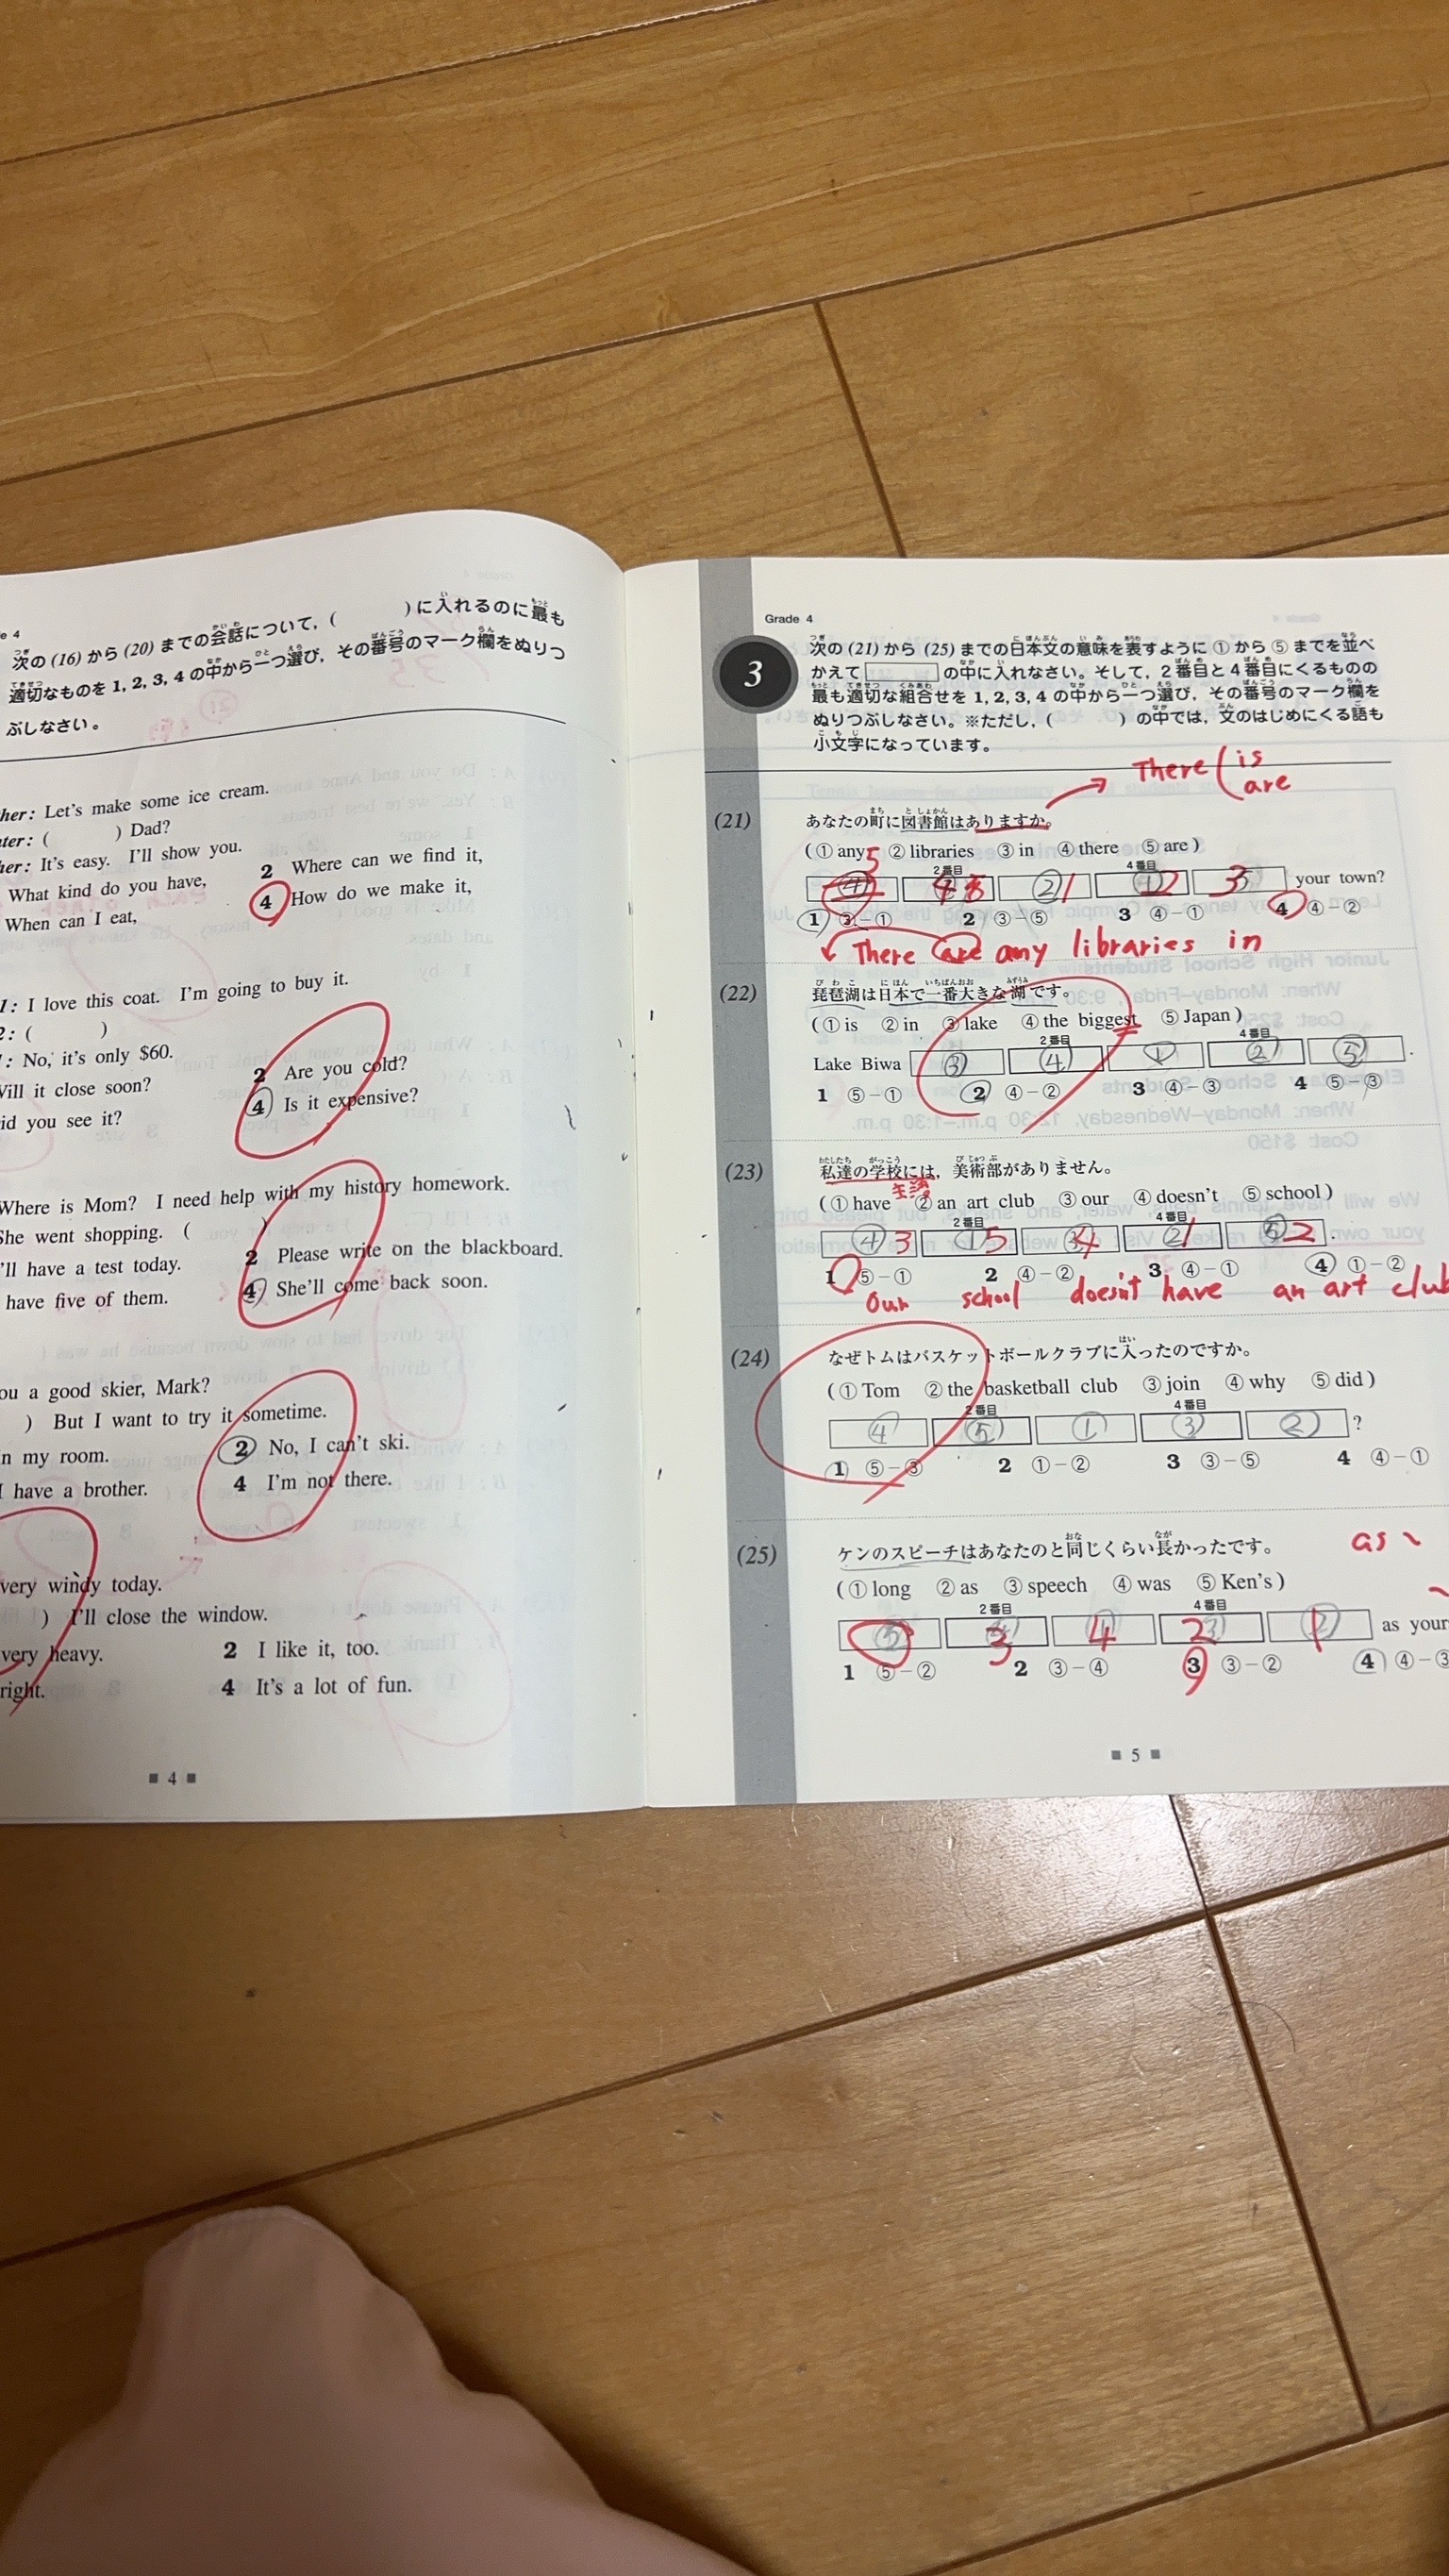 次の (16) から (20) までの会話について, (　　　) に入れるのに最も
適切なものを 1, 2, 3, 4 の中から一つ選び, その番号のマーク欄をぬりつ
ぶしなさい。
her: Let's make some ice cream.
ter: (　　　) Dad?
her: It's easy. I'll show you.
What kind do you have,
2 Where can we find it,
When can I eat,
4 How do we make it,
1: I love this coat. I'm going to buy it.
2: (　　　)
1: No, it's only $60.
Will it close soon?
2 Are you cold?
id you see it?
4 Is it expensive?
Where is Mom? I need help with my history homework.
She went shopping. (　　　)
'll have a test today.
2 Please write on the blackboard.
have five of them.
4 She'll come back soon.
ou a good skier, Mark?
) But I want to try it sometime.
n my room.
2 No, I can't ski.
I have a brother.
4 I'm not there.
very windy today.
) I'll close the window.
very heavy.
2 I like it, too.
right.
4 It's a lot of fun.
■ 4 ■
Grade 4
3
次の (21) から (25) までの日本文の意味を表すように ① から ⑤ までを並べ
かえて の中に入れなさい。そして, 2番目と4番目にくるものの
最も適切な組合せを 1, 2, 3, 4 の中から一つ選び, その番号のマーク欄を
ぬりつぶしなさい。※ただし, (　　　) の中では, 文のはじめにくる語も
小文字になっています。
There ( is
are
(21) あなたの町に図書館はありますか。
( ① any ② libraries ③ in ④ there ⑤ are )
5
2番目 4番目
4 1 2 3 your town?
1 ③－① 2 ③－⑤ 3 ④－① 4 ④－②
There are any libraries in
(22) 琵琶湖は日本で一番大きな湖です。
( ① is ② in ③ lake ④ the biggest ⑤ Japan )
2番目 4番目
Lake Biwa ③ ④ ① ② ⑤ .
1 ⑤－① 2 ④－② 3 ④－③ 4 ⑤－③
(23) 私達の学校には, 美術部がありません。
主語
( ① have ② an art club ③ our ④ doesn't ⑤ school )
2番目 4番目
3 5 4 1 2 .
1 ⑤－① 2 ④－② 3 ④－① 4 ①－②
our school doesn't have an art club
(24) なぜトムはバスケットボールクラブに入ったのですか。
( ① Tom ② the basketball club ③ join ④ why ⑤ did )
2番目 4番目
④ ⑤ ① ③ ② ?
1 ⑤－③ 2 ①－② 3 ③－⑤ 4 ④－①
(25) ケンのスピーチはあなたのと同じくらい長かったです。
as
( ① long ② as ③ speech ④ was ⑤ Ken's )
2番目 4番目
⑤ 3 4 2 1 as your
1 ⑤－② 2 ③－④ 3 ③－② 4 ④－③
■ 5 ■